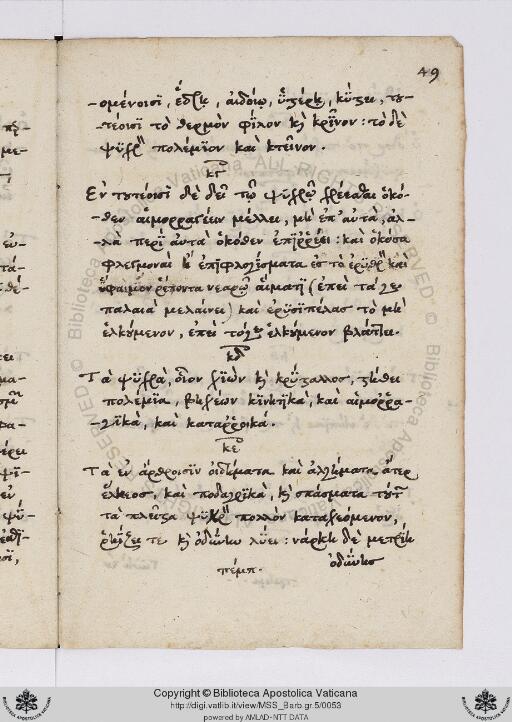 49
-ομένοισι, ἕδρῃ, αἰδοίῳ, ὑστέρῃ, κύστει, του-
-τέοισι τὸ θερμὸν φίλον καὶ κρῖνον: τὸ δὲ
ψυχρὸν πολέμιον καὶ κτεῖνον.
κγ
Ἐν τουτέοισι δὲ δεῖ τῷ ψυχρῷ χρέεσθαι ὁκό-
-θεν αἱμορραγέειν μέλλει, μὴ ἐπ' αὐτὰ, ἀλ-
-λὰ περὶ αὐτὰ ὁκόθεν ἐπιρρέει: καὶ ὁκόσα
φλεγμοναὶ ἢ ἐπιφλογίσματα ἐς τὸ ἐρυθρὸν καὶ
ὕφαιμον ῥέποντα νεαρῷ αἵματι (ἐπεὶ τά γε
παλαιὰ μελαίνει) καὶ ἐρυσιπέλας τὸ μὴ
ἑλκύμενον, ἐπεὶ τό γε ἑλκύμενον βλάπτει.
κδ
Τὰ ψυχρὰ, οἷον χιὼν καὶ κρύσταλλος, στήθει
πολέμια, βηχέων κινητικὰ, καὶ αἱμορρα-
-γικὰ, καὶ καταρροικά.
κε
Τὰ ἐν ἄρθροισιν οἰδήματα καὶ ἀλγήματα ἄτερ
ἕλκεος, καὶ ποδαγρικὰ, καὶ σπάσματα τούτων
τὰ πλεῖστα ψυχρὸν πολλὸν καταχεόμενον,
ῥηΐζει τε καὶ ὀδύνην λύει: νάρκη δὲ μετρίη
ὀδύνης
πέμπ.
Copyright © Biblioteca Apostolica Vaticana
http://digi.vatlib.it/view/MSS_Barb.gr.5/0053
powered by AMLAD-NTT DATA